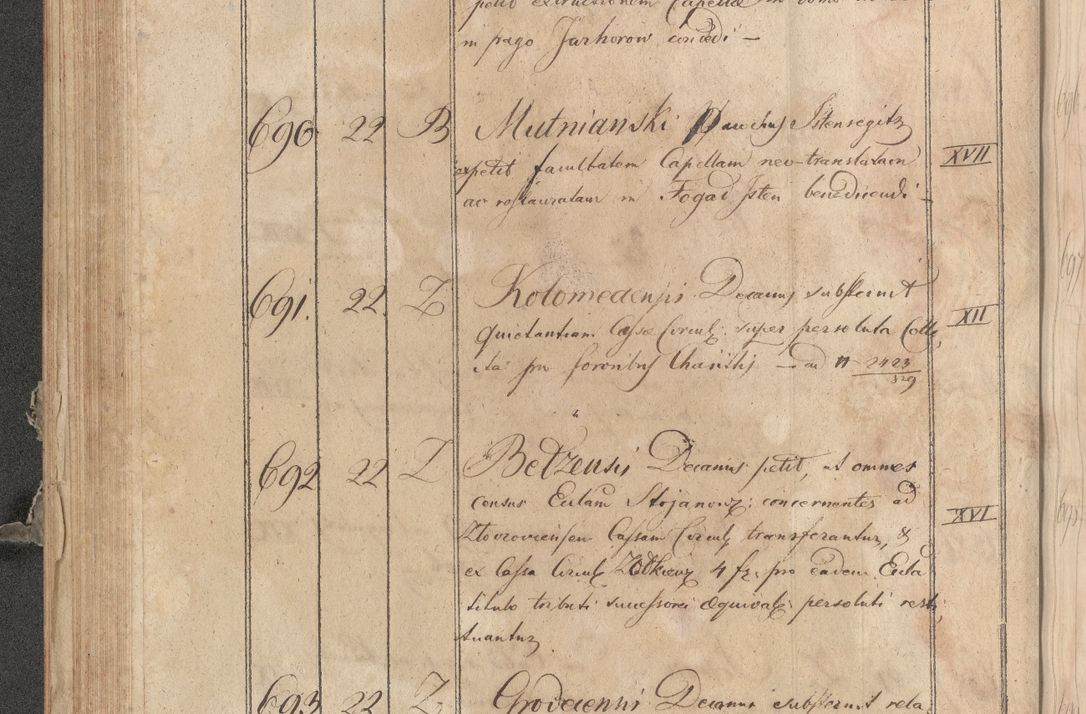 petit extructionem Capellae in domo
in pago Jarhorow concedi —
690 22 B Mutnianski Parochus Istensegitz
expetit facultatem Capellam neo-translatam XVII
ac restauratam in Fogad Isten benedicendi —
691. 22. Z Kolomeaensis Decanus substernit
quietantiam Cassae Circul. super persoluta Colle XII
cta pro foronibus — ad N 2423
529
692 22 Z Bełzensis Decanus petit, ut omnes
census Ecclam Stojanow: concernentes ad
Złoczoviensem Cassam Circul. transferantur, & XVI
ex Cassa Circul. Żółkiew 4 fr. pro eadem Eccla
titulo tributi successorei aequival: persoluti resti
tuantur.
693 22 Z Grodecensis Decanus substernit rela